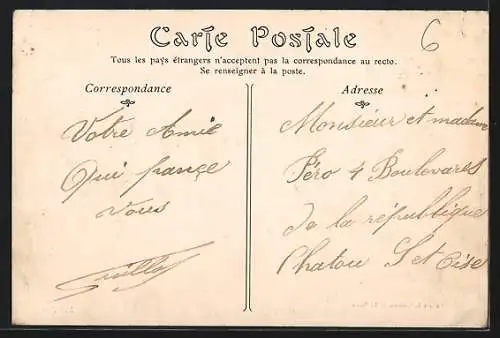 Carte Postale
6
Tous les pays étrangers n'acceptent pas la correspondance au recto.
Se renseigner à la poste.
Correspondance
Adresse
Votre Amie
Qui pance
vous
Monsieur et madame
Péro 4 Boulevares
de la république
Chatou S et Oise